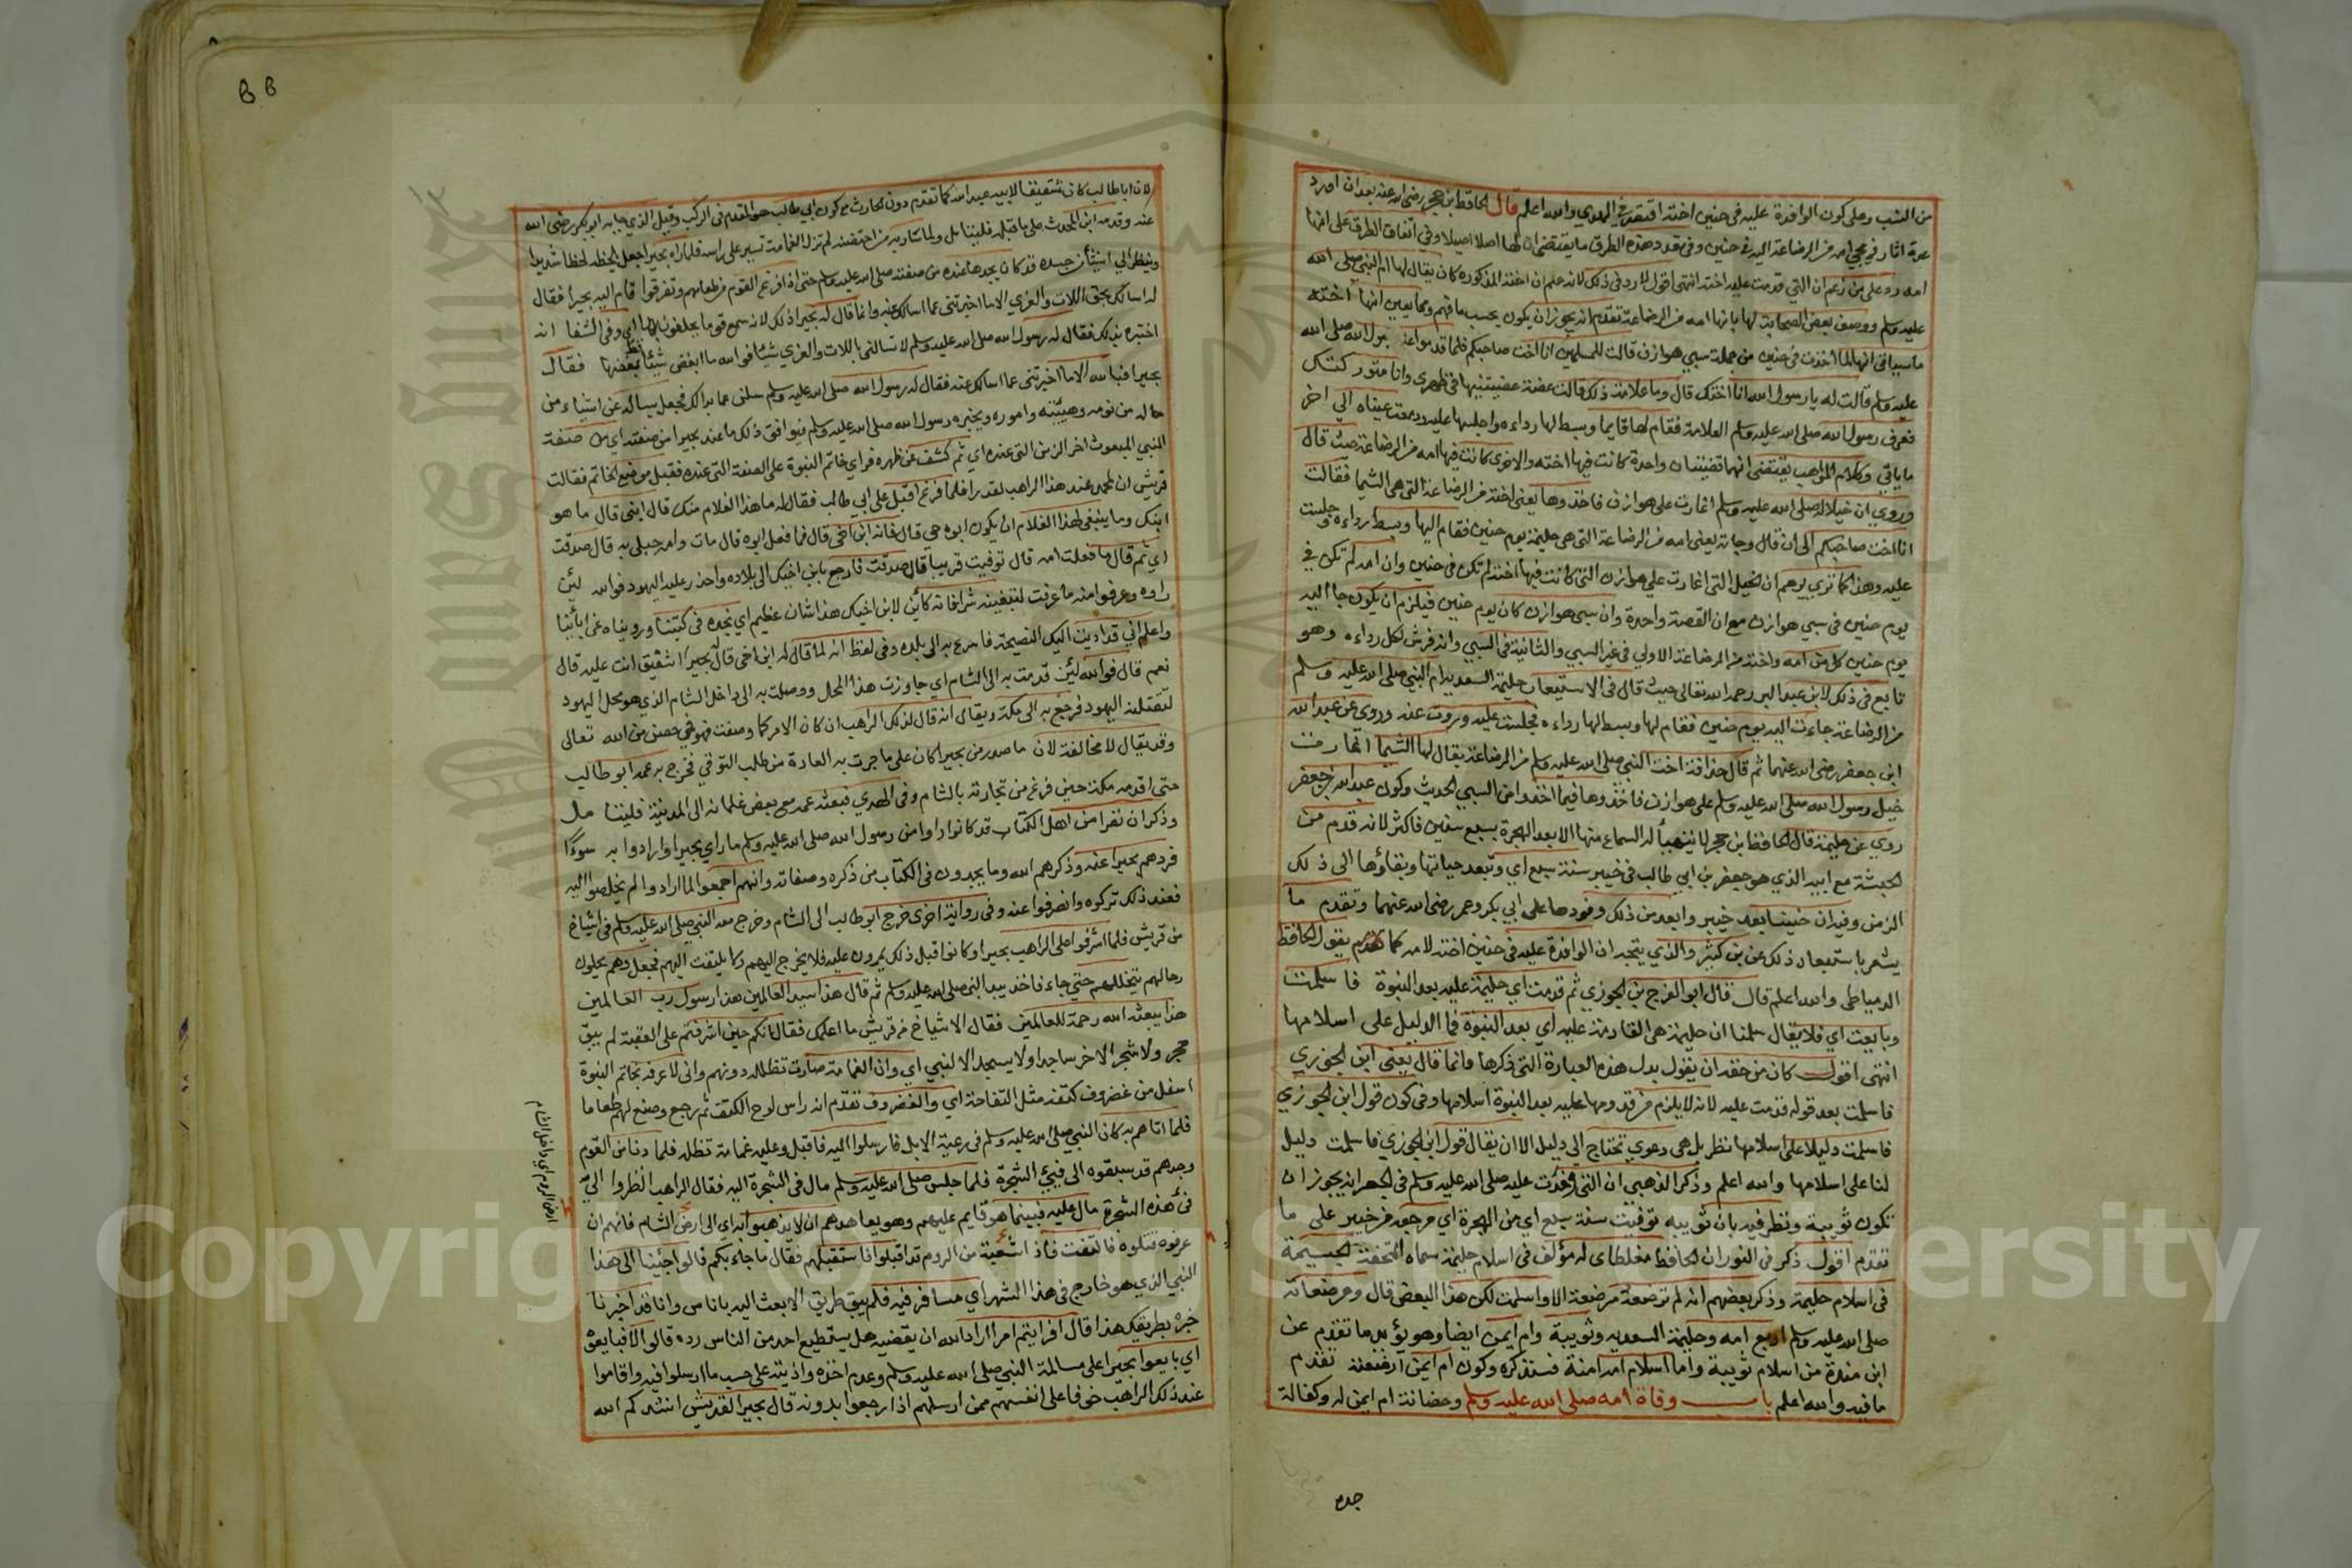 من النسب وعلى كون الوافدة عليه في حنين اخته اقتصر في الهدي والله اعلم قال الحافظ ابن حجر رضي الله عنه بعد ان اورد
عدة اثار في مجيء امه من الرضاعة اليه في حنين وفي تعدد هذه الطرق ما يقتضي ان لها اصلا اصيلا وفي اتفاق الطرق على انها
امه رد على من زعم ان التي قدمت عليه اخته انتهى اقول لا رد في ذلك لانه علم ان اخته المذكورة كان يقال لها ام النبي صلى الله
عليه وسلم ووصف بعض الصحابة لها بانها امه من الرضاعة تقدم انه يجوز ان يكون بحسب ما فهم ومما يعين انها اخته
ما سياتي انها لما اخذت في حنين من جملة سبي هوازن قالت للمسلمين انا اخت صاحبكم فلما قدموا على رسول الله صلى الله
عليه وسلم قالت له يا رسول الله انا اختك قال وما علامة ذلك قالت عضة عضيتنيها في ظهري وانا متوركتك
فعرف رسول الله صلى الله عليه وسلم العلامة فقام لها قايما وبسط لها رداءه واجلسها عليه ودمعت عيناه الى اخر
ما ياتي وكلام المواهب يقتضي انهما قضيتان واحدة كانت فيها اخته والاخرى كانت فيها امه من الرضاعة حيث قال
وروي ان خيلا له صلى الله عليه وسلم اغارت على هوازن فاخذوها يعني اخته من الرضاعة التي هي الشيما فقالت
انا اخت صاحبكم الى ان قال وجاءته يعني امه من الرضاعة التي هي حليمة يوم حنين فقام اليها وبسط رداءه وجلست
عليه وهذا كما ترى يوهم ان الخيل التي اغارت على هوازن التي كانت فيها اخته لم تكن في حنين وان امه لم تكن في
يوم حنين في سبي هوازن مع ان القصة واحدة وان سبي هوازن كان يوم حنين فيلزم ان يكون جاء اليه
يوم حنين كل من امه واخته من الرضاعة الاولى في غير السبي والثانية في السبي وانه فرش لكل رداءه وهو
تابع في ذلك لابن عبد البر رحمه الله تعالى حيث قال في الاستيعاب حليمة السعدية ام النبي صلى الله عليه وسلم
من الرضاعة جاءت اليه يوم حنين فقام لها وبسط لها رداءه فجلست عليه وروت عنه وروى عن عبد الله
ابن جعفر رضي الله عنهما ثم قال حذافة اخت النبي صلى الله عليه وسلم من الرضاعة يقال لها الشيما اغارت
خيل رسول الله صلى الله عليه وسلم على هوازن فاخذوها فيما اخذوا من السبي الحديث وكون عبد الله بن جعفر
روي عن حليمة قال الحافظ ابن حجر لا يتهيأ له السماع منها الا بعد الهجرة بسبع سنين فاكثر لانه قدم من
الحبشة مع ابيه الذي هو جعفر بن ابي طالب في خيبر سنة سبع اي وتبعد حياتها وبقاؤها الى ذلك
الزمن وفيه ان حنينا بعد خيبر وابعد من ذلك وفودها على ابي بكر وعمر رضي الله عنهما وتقدم ما
يشعر باستبعاد ذلك عن بن كثير والذي يتجه ان الوافدة عليه في حنين اخته لا امه كما تقدم يقول الحافظ
الدمياطي والله اعلم قال قال ابو الفرج بن الجوزي ثم قدمت اي حليمة عليه بعد النبوة فاسلمت
وبايعت اي فلا يقال سلمنا ان حليمة هي القادمة عليه اي بعد النبوة فما الدليل على اسلامها
انتهى اقول كان من حقه ان يقول بدل هذه العبارة التي ذكرها وانما قال يعني ابن الجوزي
فاسلمت بعد قوله قدمت عليه لانه لا يلزم من قدومها عليه بعد النبوة اسلامها وفي كون قول ابن الجوزي
فاسلمت دليلا على اسلامها نظر بل هي دعوى تحتاج الى دليل الا ان يقال قول ابن الجوزي فاسلمت دليل
لنا على اسلامها والله اعلم وذكر الذهبي ان التي وفدت عليه صلى الله عليه وسلم في الجعرانة يجوز ان
تكون ثويبة ونظر فيه بان ثويبة توفيت سنة سبع اي من الهجرة اي مرجعه من خيبر على ما
تقدم اقول ذكر في النور ان الحافظ مغلطاي له مؤلف في اسلام حليمة سماه التحفة الجسيمة
في اسلام حليمة وذكر بعضهم انه لم ترضعه مرضعة الا واسلمت لكن هذا البعض قال ومرضعاته
صلى الله عليه وسلم اربع امه وحليمة السعدية وثويبة وام ايمن ايضا وهو يؤيد ما تقدم عن
ابن مندة من اسلام ثويبة واما اسلام امه امنة فسنذكره وكون ام ايمن ارضعته تقدم
ما فيه والله اعلم باب وفاة امه صلى الله عليه وسلم وحضانة ام ايمن له وكفالة
جده
لان ابا طالب كان شقيقا لابيه عبد الله كما تقدم دون الحارث مع كون ابي طالب هو المقدم في الركب وقيل الذي جا به ابو بكر رضي الله
عنه وقدمه ابن المحدث على ما قبله فليتامل ولما سار به من احتضنه لم تزل الغمامة تسير على راسه فلما راه بحيرا جعل يلحظه لحظا شديدا
وينظر الى اشياء من جسده قد كان يجدها عنده من صفته صلى الله عليه وسلم حتى اذا فرغ القوم من طعامهم وتفرقوا قام اليه بحيرا فقال
له اسالك بحق اللات والعزى الا ما اخبرتني عما اسالك عنه وانما قال له بحيرا ذلك لانه سمع قومه يحلفون بهما اي وفي الشفا انه
اختبره بذلك فقال له رسول الله صلى الله عليه وسلم لا تسالني باللات والعزى شيئا فوالله ما ابغض شيئا قط بغضهما فقال
بحيرا فبالله الا ما اخبرتني عما اسالك عنه فقال له رسول الله صلى الله عليه وسلم سلني عما بدا لك فجعل يساله عن اشياء من
حاله من نومه وهيئته واموره ويخبره رسول الله صلى الله عليه وسلم فيوافق ذلك ما عند بحيرا من صفته اي من صفة
النبي المبعوث اخر الزمن التي عنده اي ثم كشف عن ظهره فراى خاتم النبوة على الصفة التي عنده فقبل موضع الخاتم فقالت
قريش ان لمحمد عند هذا الراهب لقدرا فلما فرغ اقبل على ابي طالب فقال له ما هذا الغلام منك قال ابني قال ما هو
ابنك وما ينبغي لهذا الغلام ان يكون ابوه حي قال فانه ابن اخي قال فما فعل ابوه قال مات وامه حبلى به قال صدقت
اي ثم قال ما فعلت امه قال توفيت قريبا قال صدقت فارجع بابن اخيك الى بلاده واحذر عليه اليهود فوالله لئن
راوه وعرفوا منه ما عرفت لتبغينه شرا فانه كائن لابن اخيك هذا شان عظيم اي نجده في كتبنا ورويناه عن ابائنا
واعلم اني قد اديت اليك النصيحة فاسرع به الى بلده وفي لفظ انه لما قال له ابن اخي قال بحيرا اشفيق انت عليه قال
نعم قال فوالله لئن قدمت به الى الشام اي جاوزت هذا المحل ووصلت به الى داخل الشام الذي هو محل اليهود
لتقتلنه اليهود فرجع به الى مكة ويقال انه قال لذلك الراهب ان كان الامر كما وصفت فهو في حصن من الله تعالى
وقد يقال لا مخالفة لان ما صدر من بحيرا كان على ما جرت به العادة من طلب التوقي فخرج به عمه ابو طالب
حتى اقدمه مكة حين فرغ من تجارته بالشام وفي الهدي فبعثه عمه مع بعض غلمانه الى المدينة فليتامل
وذكر ان نفرا من اهل الكتاب قد كانوا راوا من رسول الله صلى الله عليه وسلم ما راى بحيرا وارادوا به سوءا
فردهم بحيرا عنه وذكرهم الله وما يجدون في الكتاب من ذكره وصفاته وانهم اجمعوا لما ارادوا لم يخلصوا اليه
فعند ذلك تركوه وانصرفوا عنه وفي رواية اخرى خرج ابو طالب الى الشام وخرج معه النبي صلى الله عليه وسلم في اشياخ
من قريش فلما اشرفوا على الراهب بحيرا وكانوا قبل ذلك يمرون عليه فلا يخرج اليهم ولا يلتفت اليهم فجعل وهم يحلون
رحالهم يتخللهم حتى جاء فاخذ بيد النبي صلى الله عليه وسلم ثم قال هذا سيد العالمين هذا رسول رب العالمين
هذا يبعثه الله رحمة للعالمين فقال الاشياخ من قريش ما اعلمك فقال انكم حين اشرفتم على العقبة لم يبق
حجر ولا شجر الا خر ساجدا ولا يسجد الا لنبي اي وان الغمامة صارت تظلله دونهم واني لاعرفه بخاتم النبوة
اسفل من غضروف كتفه مثل التفاحة اي والغضروف تقدم انه راس لوح الكتف ثم رجع وصنع لهم طعاما
فلما اتاهم به كان النبي صلى الله عليه وسلم في رعية الابل فارسلوا اليه فاقبل وعليه غمامة تظله فلما دنا من القوم
وجدهم قد سبقوه الى فيء الشجرة فلما جلس صلى الله عليه وسلم مال فيء الشجرة اليه فقال الراهب انظروا الى
فيء هذه الشجرة مال عليه فبينما هو قايم عليهم وهو يعاهدهم ان لا يذهبوا به اي الى ارض الشام فانهم ان
عرفوه قتلوه فالتفت فاذا سبعة من الروم قد اقبلوا فاستقبلهم فقال ما جاء بكم قالوا جئنا الى هذا
النبي الذي هو خارج في هذا الشهر اي مسافر فيه فلم يبق طريق الا بعث اليه باناس وانا قد اخبرنا
خبره بطريقك هذا قال افرايتم امرا اراد الله ان يقضيه هل يستطيع احد من الناس رده قالوا لا فبايعوه
اي بايعوا بحيرا على مسالمة النبي صلى الله عليه وسلم وعدم اخذه واذيته على حسب ما ارسلوا فيه واقاموا
عند ذلك الراهب خوفا على انفسهم ممن ارسلهم اذا رجعوا بدونه قال بحيرا لقريش انشدكم الله
ارض الروم اي داخل الشام
Copyright © King Saud University